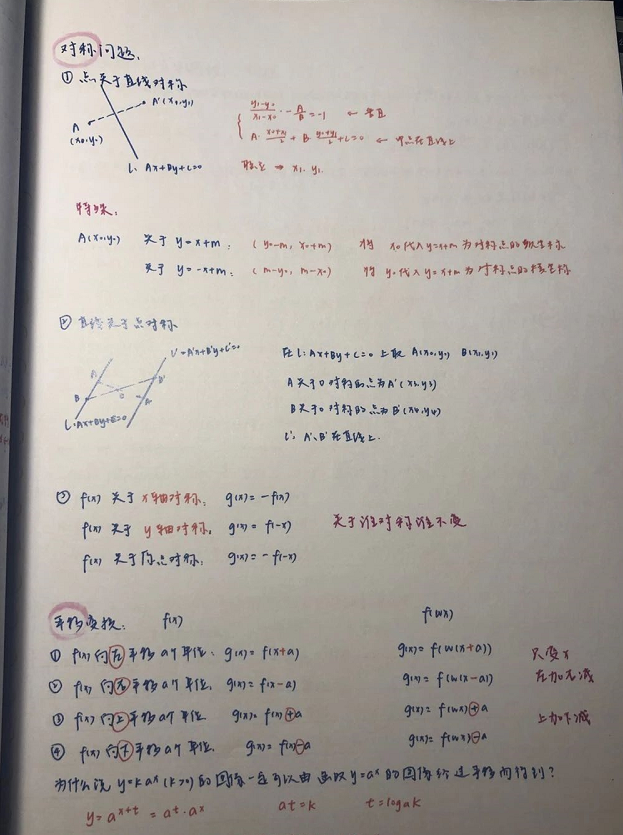 对称问题.
① 点关于直线对称
A'(x₁,y₁)
A
(x₀,y₀)
l: Ax+By+C=0
(y₁-y₀)/(x₁-x₀) · -A/B = -1 ← 垂直
A·(x₀+x₁)/2 + B·(y₀+y₁)/2 + C=0 ← 中点在直线上
联立 ⇒ x₁, y₁.
特殊:
A(x₀,y₀) 关于 y=x+m: (y₀-m, x₀+m) 将 x₀代入y=x+m 为对称点的纵坐标
关于 y=-x+m: (m-y₀, m-x₀) 将 y₀代入y=x+m 为对称点的横坐标
② 直线关于点对称
l'=A'x+B'y+C'=0
A
B'
B
O
A'
l: Ax+By+C=0
在l: Ax+By+C=0 上取 A(x₀,y₀) B(x₁,y₁)
A关于O对称的点为A'(x₃,y₃)
B关于O对称的点为B'(x₄,y₄)
l': A'、B'在直线上.
③ f(x) 关于 x轴对称: g(x)= -f(x)
f(x) 关于 y轴对称: g(x)= f(-x) 关于谁对称谁不变
f(x) 关于原点对称: g(x)= -f(-x)
平移变换: f(x) f(wx)
① f(x) 向左平移a个单位: g(x)= f(x+a) g(x)= f(w(x+a)) 只变x
② f(x) 向右平移a个单位: g(x)= f(x-a) g(x)= f(w(x-a)) 左加右减
③ f(x) 向上平移a个单位 g(x)= f(x)+a g(x)= f(wx)+a 上加下减
④ f(x) 向下平移a个单位 g(x)= f(x)-a g(x)= f(wx)-a
为什么说 y=k aˣ (k>0) 的图像一定可以由函数 y=aˣ 的图像经过平移而得到?
y= aˣ⁺ᵗ = aᵗ·aˣ aᵗ=k t=logₐk